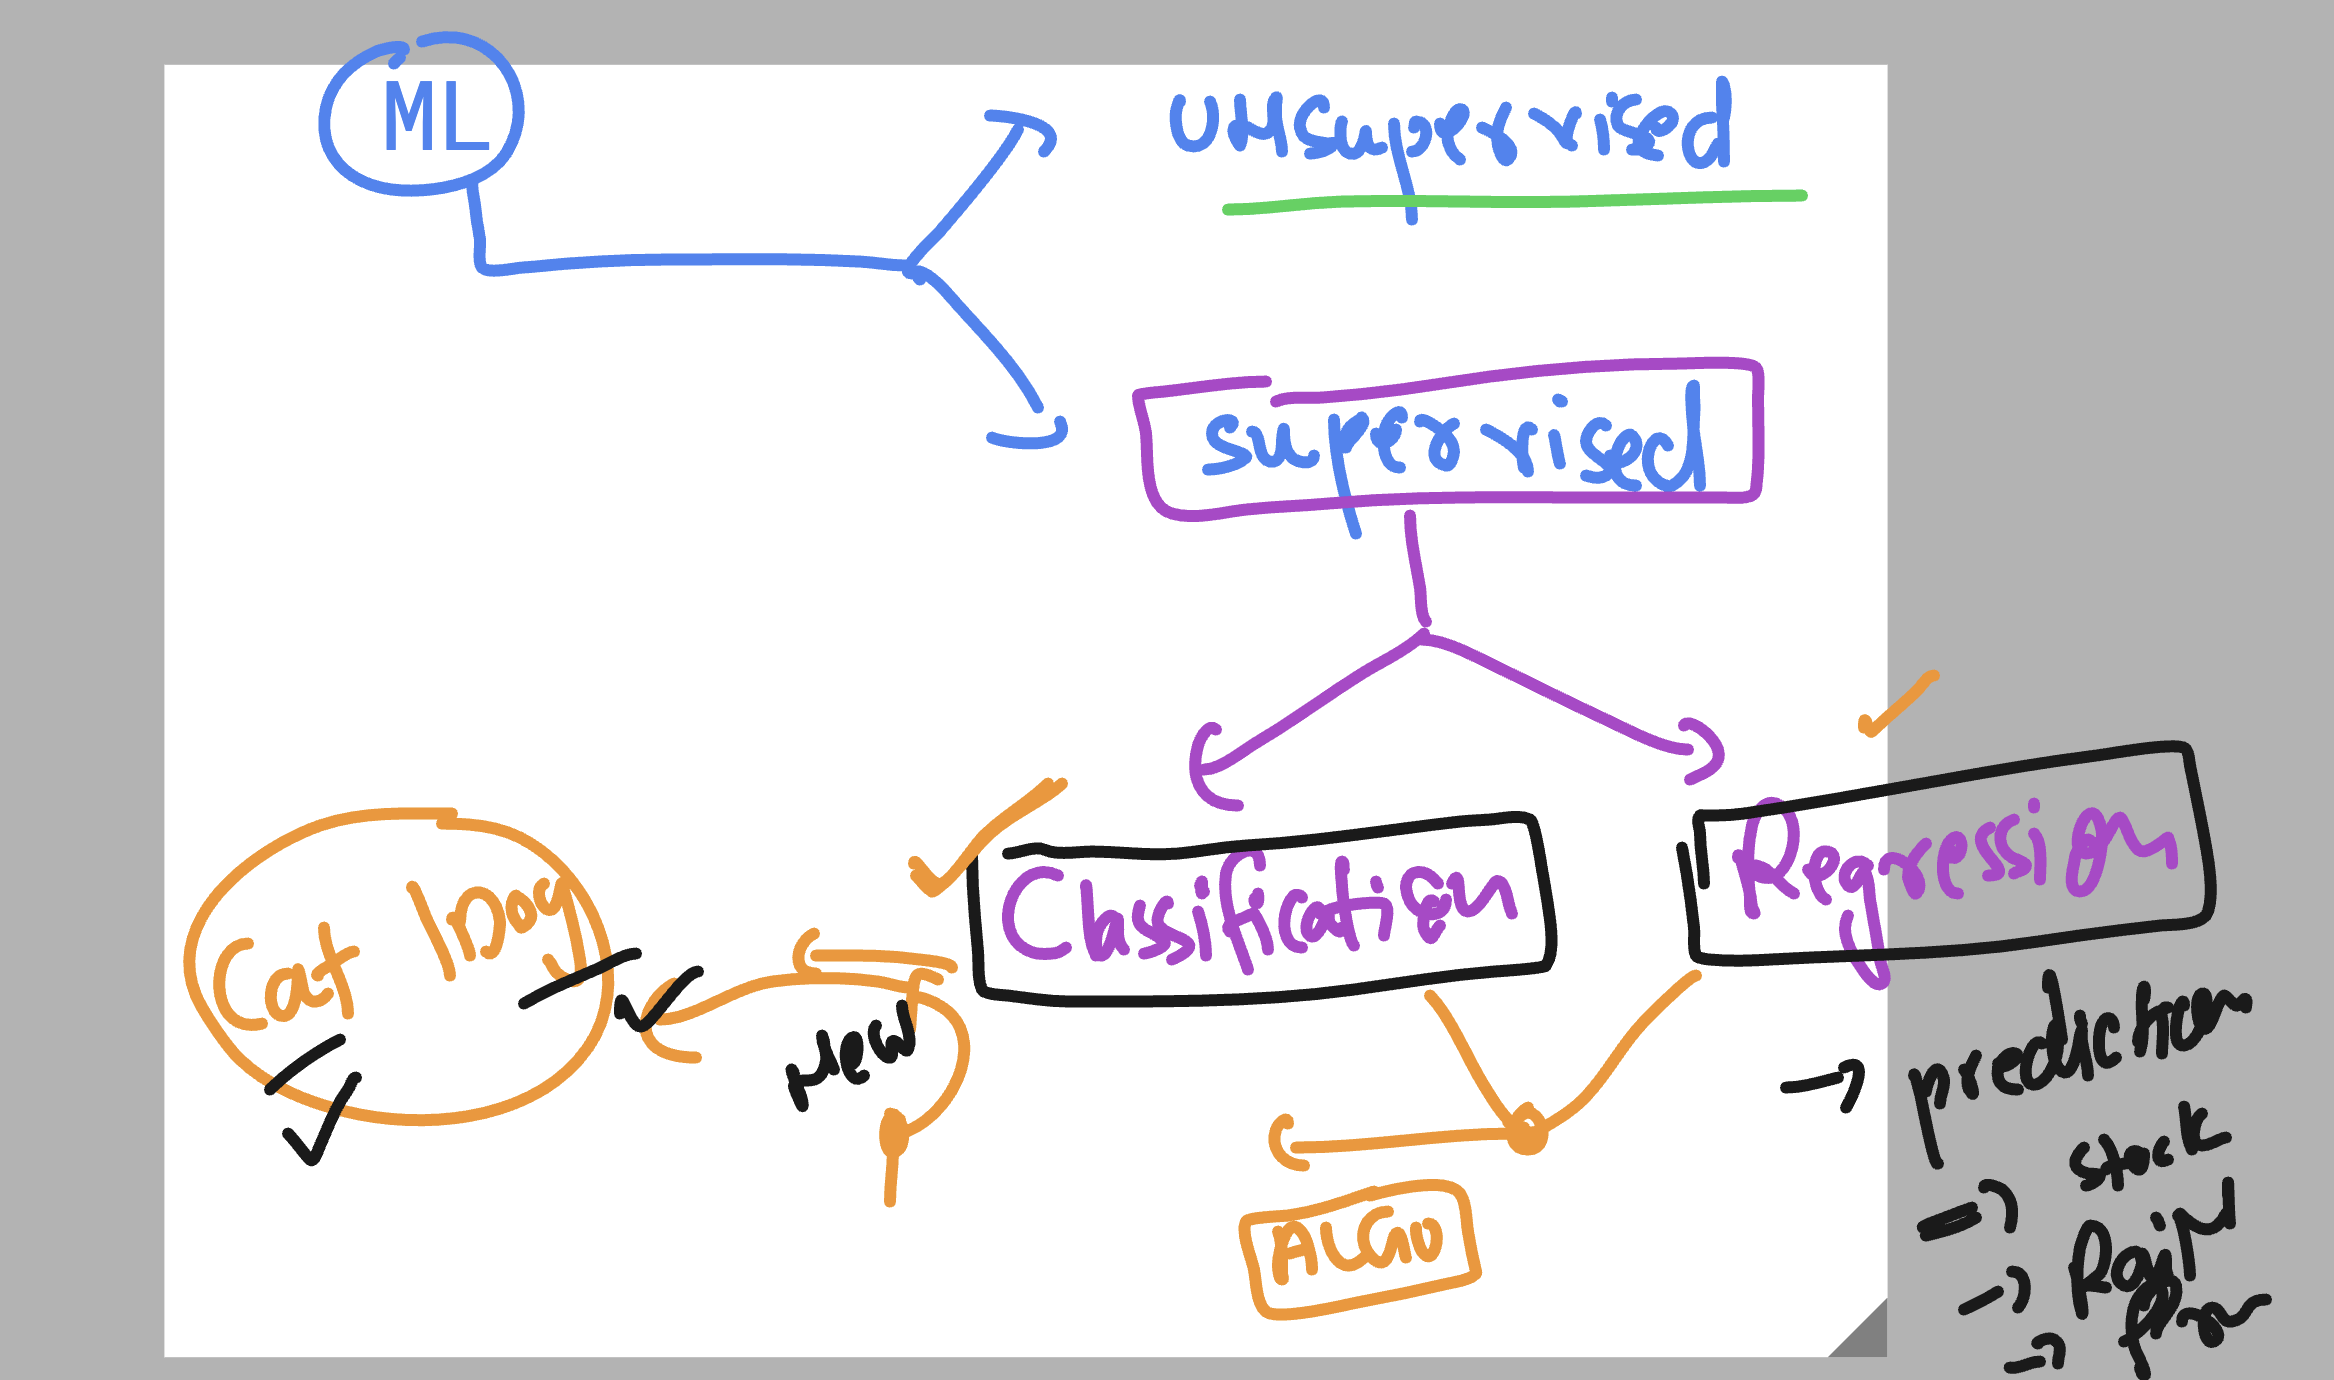 ML
UNsupervised
supervised
Classification
Regression
Cat Dog
New
prediction
stock
Rain
ALGO